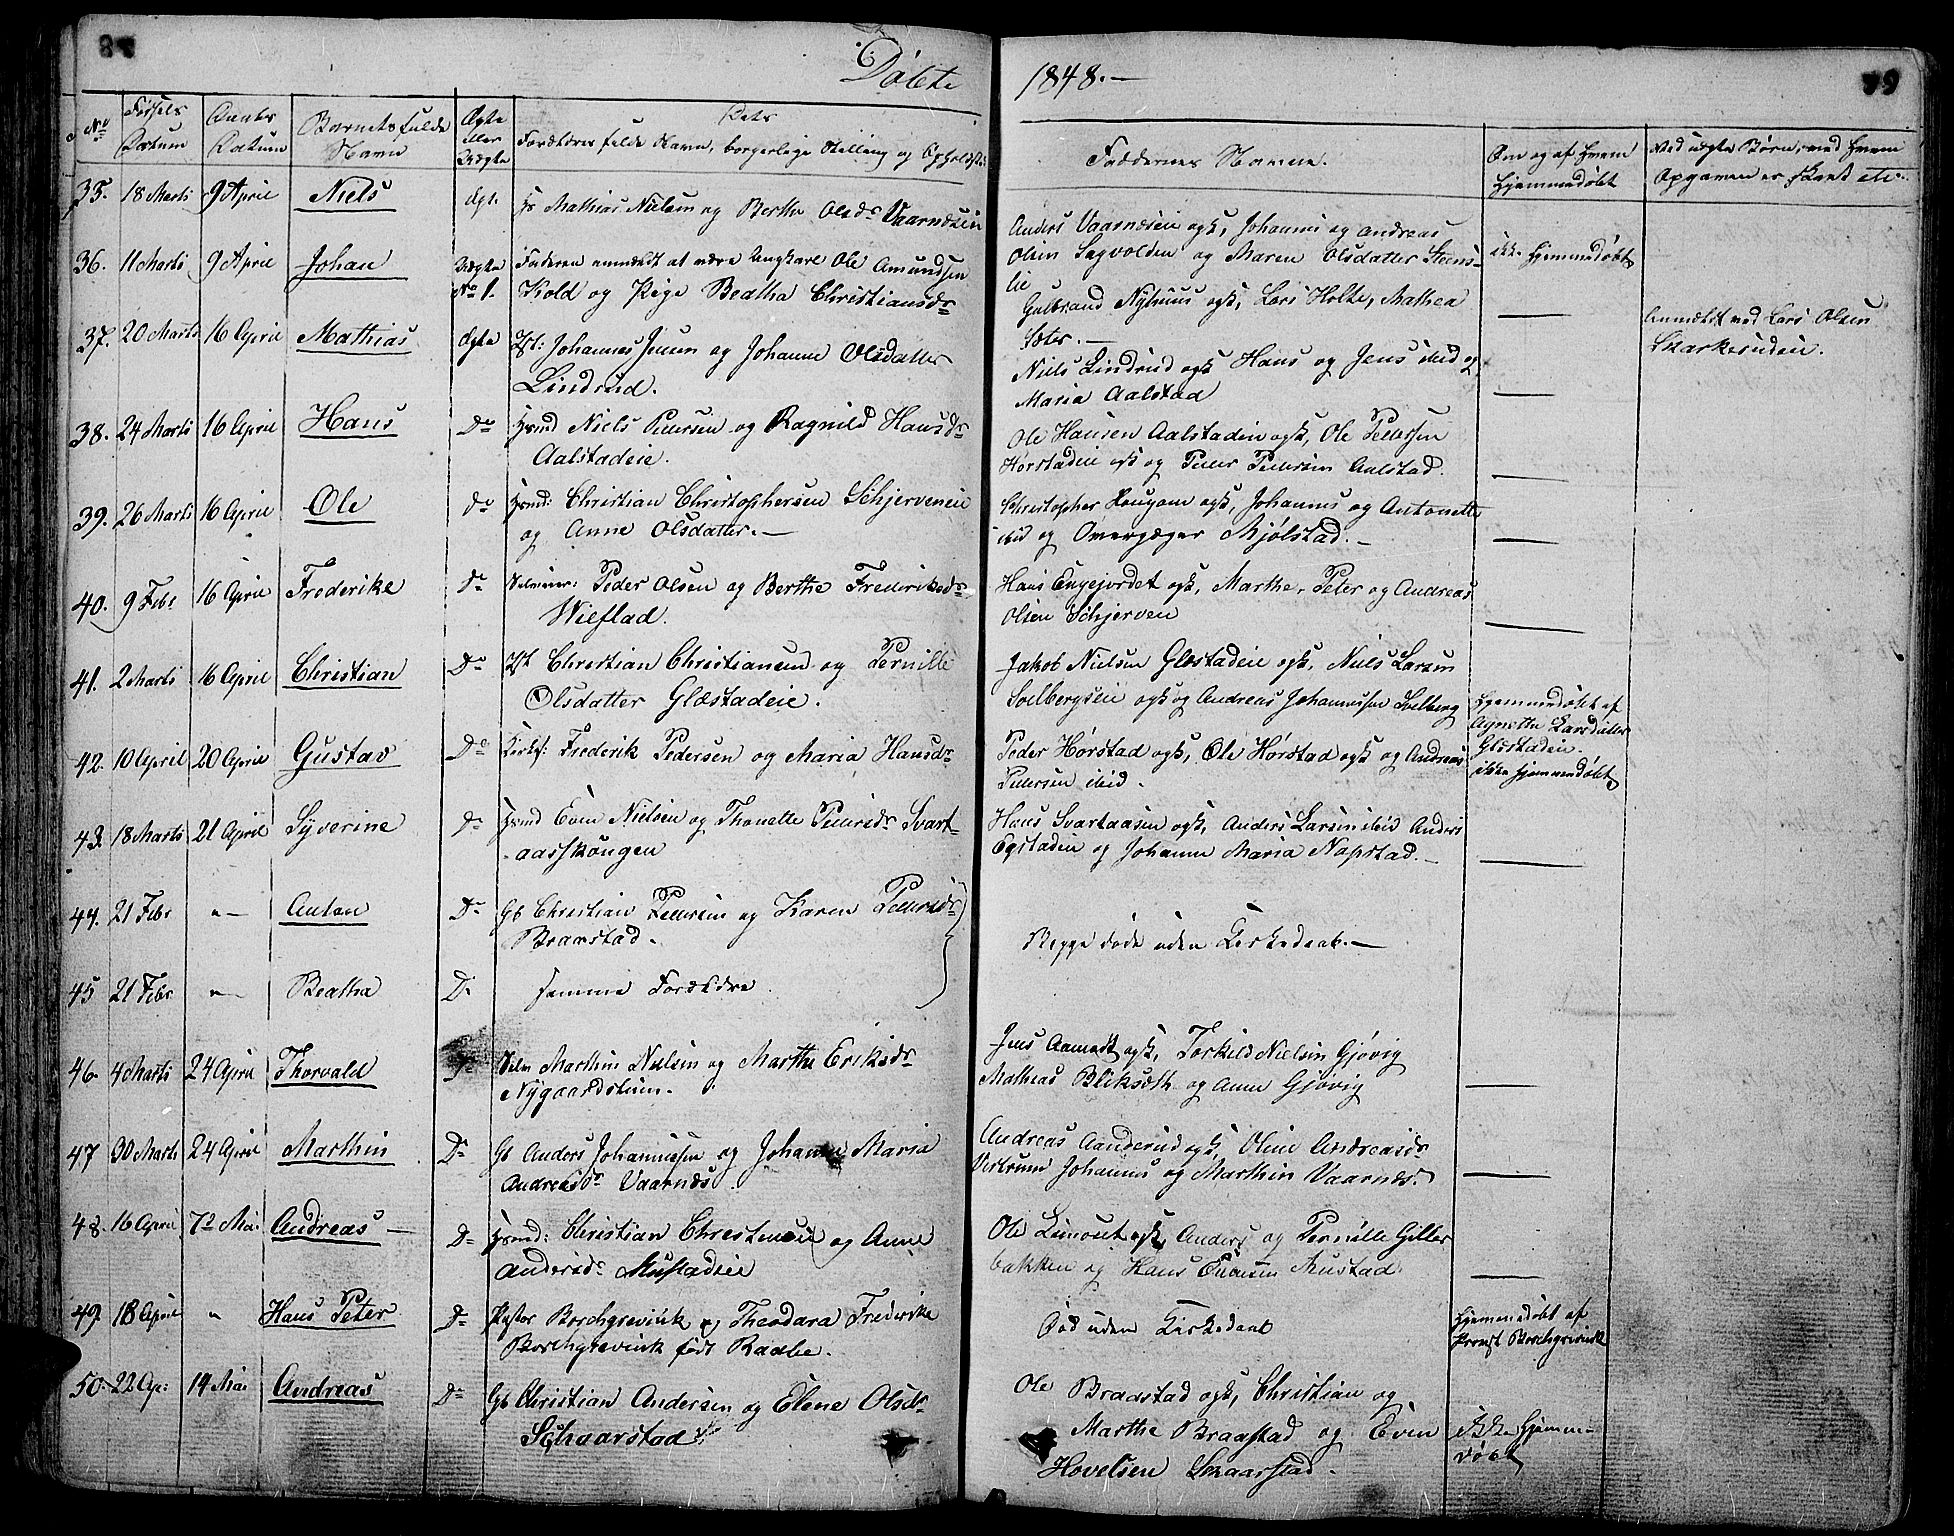 Døbte
1848.—
79
No
Fødsels
Datum
Daabs
Datum
Barnets fulde
Navn
Ægte
eller
Uægte
Dets
Forældres fulde Navn, borgerlige Stilling og Opholdsst:
Faddernes Navne.
Om og af Hvem
Hjemmedøbt
Ved uægte Børn, med Hvem
Opgaven er skeet etc.
35. 18 Marts 9 April Niels Ægt. Hs Mathias Nielsen og Berthe Olsdr Vaarnæseie
Anders Vaarnæseie ogsk, Johannes og Andreas
Olsen Sagvolden og Maren Olsdatter Steens-
lie
ikke Hjemmedøbt
36. 11 Marts 9 April Johan Uægte Faderen anmældt at være Ungkarl Ole Amundsen
No 1. Kold og Pige Beatha Christiansdr
Gulbrand Nyhuus ogsk, Lars Holte, Mathea
Sæter.—
Anmeldt ved Lars Olsen
37. 20 Marts 16 April Mathias Ægte Johannes Jensen og Johanne Olsdatter
Lindrud.
Niels Lindrud ogsk Hans og Jens ibid og
Maria Aalstad
38. 24 Marts 16 April Hans Do Hsmd Niels Pedersen og Ragnild Hansdr
Aalstadeie.
Ole Hansen Aalstadeie ogsk, Ole Pedersen
Hørstadeie ogsk og Peder Pedersen Aalstad.
39. 26 Marts 16 April Ole Do Hsmd: Christian Christophersen Schjerveneie
og Anne Olsdatter.—
Christopher Haugom ogsk, Johannes og Antonette
ibid og Mjølstad.—
40. 9 Febr 16 April Frederikke Do Peder Olsen og Berthe Frederiksdr
Wiefstad.
Hans Engejordet ogsk, Marthe, Peter og Andreas
Olsen Schjerven
41. 2 Marts 16 April Christian Do Christian Christiansen og Pernille
Olsdatter Glæstadeie.
Jakob Nielsen Glæstadeie ogsk, Niels Larsen
Sollbergseie ogsk og Andreas Johannessen Solberg
Hjemmedøbt af
Agnethe Larsdatter
Glæstadeie.
42. 10 April 20 April Gustav Do Frederik Pedersen og Maria Hansdr
Peder Hørstad ogsk, Ole Hørstad ogsk og Andreas
Pedersen ibid.
ikke Hjemmedøbt
43. 18 Marts 21 April Syverine Do Hsmd Even Nielsen og Thonette Pedersdr Svart-
aasskougen
Hans Svartaasen ogsk, Anders Larsen ibid Anders
Egstadeie og Johanne Maria Napstad.—
44. 21 Febr " Anton Do Gb Christian Pedersen og Karen Pedersdr
Braastad.
Begge døde uden Kirkedaab.—
45 21 Febr " Beatha Do samme Forældre.
46. 4 Marts 24 April Thorvald Do Marthin Nielsen og Marthe Eriksdr
Nygaardshuus.
Jens Aamodt ogsk, Torkild Nielsen Gjøvig
Mathias Bliksæth og Anne Gjøvig
47 30 Marts 24 April Marthin Do Gb Anders Johannessen og Johanne Maria
Andreasdr Vaarnæs.
Andreas Aanderud ogsk, Oline Andreasdr
Vestrum Johannes og Marthin Vaarnæs.
48. 16 April 7de Mai Andreas — Do Hsmd: Christian Christensen og Anne
Andersdr Mustadeie
Ole ogsk, Anders og Pernille Giller
bakken og Hans Evensen Mustad.
49. 18 April " Hans Peter Do Pastor Borchgrevink og Theodara Frederikke
Borchgrevink født Raabe.
Død uden Kirkedaab
Hjemmedøbt af
Provst Borchgrevink
50. 22 Ap: 14 Mai Andreas Do Gb Christian Andersen og Elene Olsdr
Schaarstad
Ole Braastad ogsk, Christian og
Marthe Braastad og Even
Hovelsen Skaarstad.
ikke Hjemme-
døbt